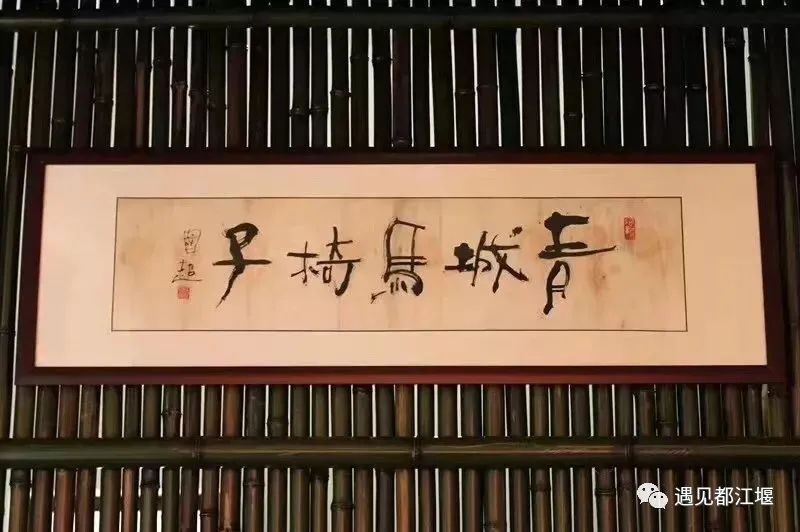 青城馬椅子
國超
遇见都江堰